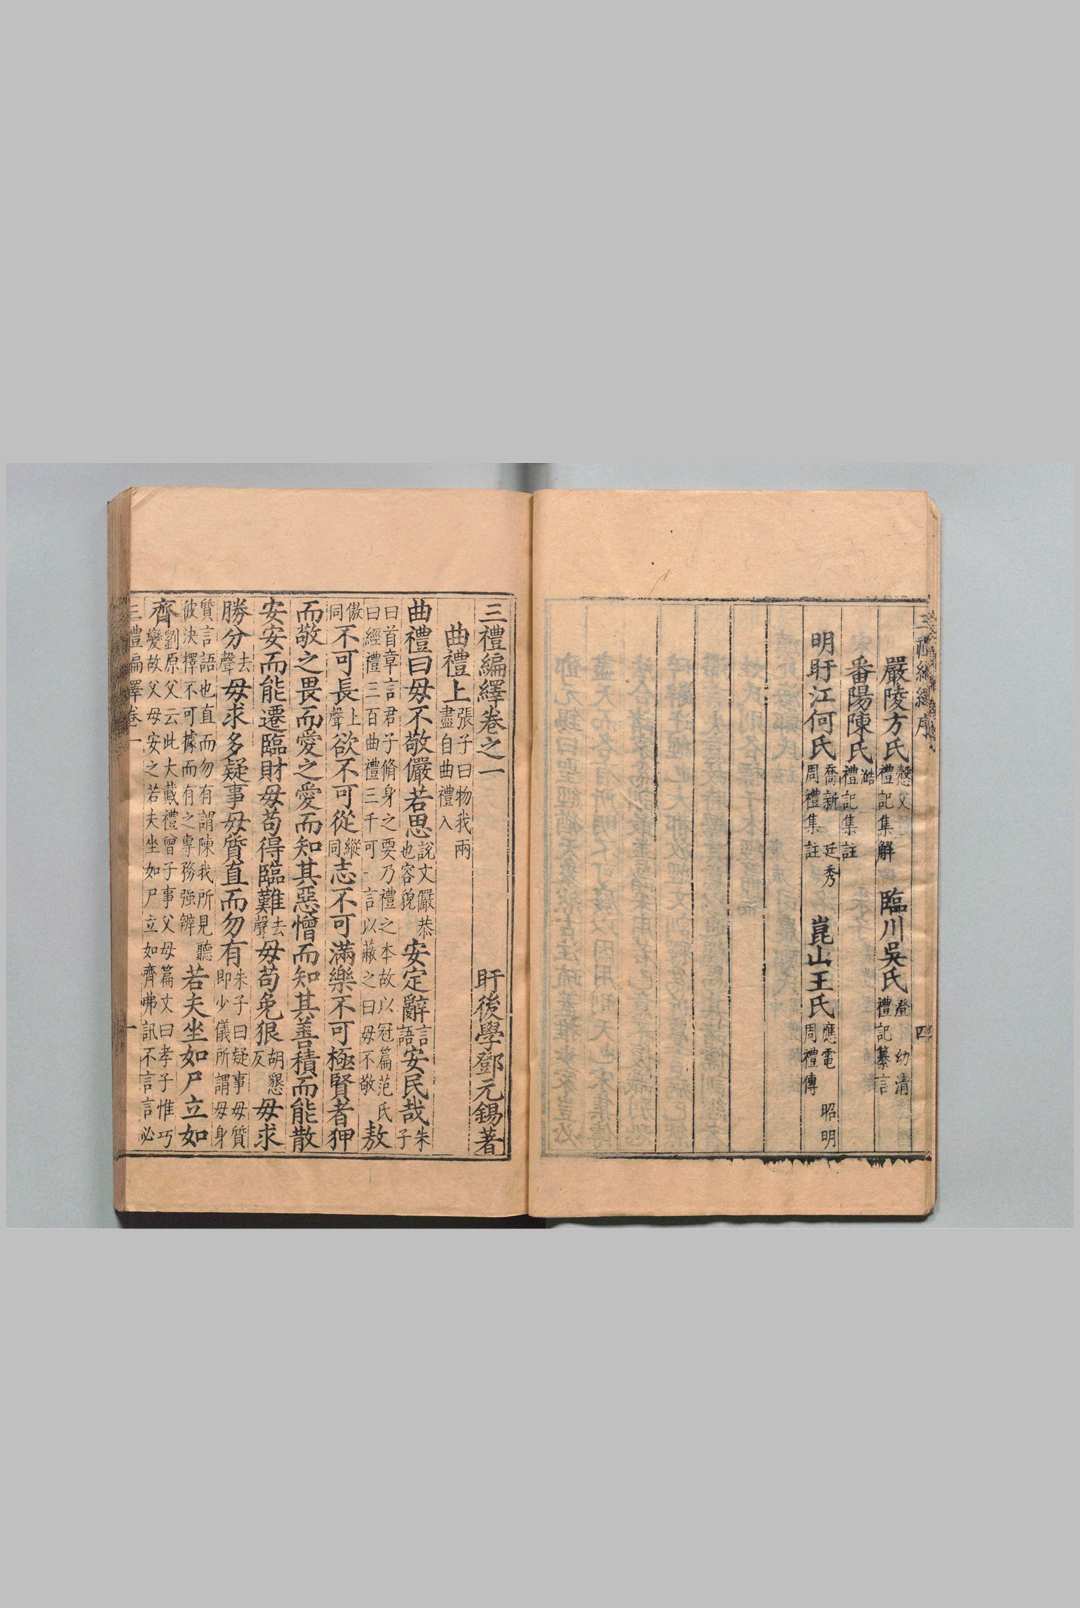 嚴陵方氏 慤 禮記集解 臨川吳氏 幼清 禮記纂言
番陽陳氏 澔 禮記集註
明盱江何氏 喬新 廷秀 周禮集註 崑山王氏 應電 昭明 周禮傳
三禮編繹卷之一 盱後學鄧元錫著
曲禮上 張子曰物我兩盡自曲禮入
曲禮曰毋不敬儼若思 說文儼恭也容貌 安定辭 言語 安民哉 朱子
曰首章言君子脩身之要乃禮之本故以冠篇范氏曰經禮三百曲禮三千可一言以蔽之曰毋不敬 敖
傲同 不可長 上聲 欲不可從 縱同 志不可滿樂不可極賢者狎
而敬之畏而愛之愛而知其惡憎而知其善積而能散
安安而能遷臨財毋苟得臨難 去聲 毋苟免狠 胡懇反 毋求
勝分 去聲 毋求多疑事毋質直而勿有 朱子曰疑事毋質即少儀所謂毋身
質言語也直而勿有謂陳我所見聽彼決擇不可據而有之專務強辨 若夫坐如尸立如
齊 劉原父云此大戴禮曾子事父母篇文曰孝子惟巧變故父母安之若夫坐如尸立如齊弗訊不言言必
三禮編繹卷一 一